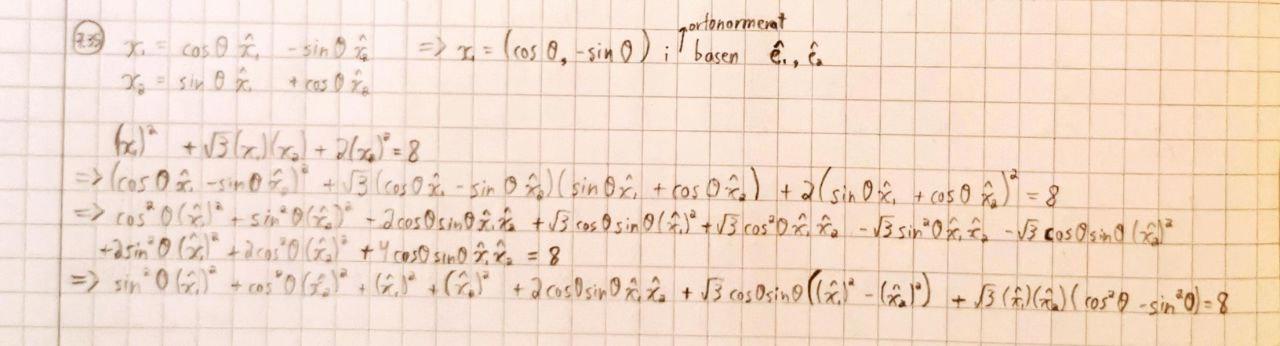 7.35 x₁ = cosθ x̂₁ - sinθ x̂₂ => x₁ = (cosθ, -sinθ) i ortonormerat basen ê₁, ê₂
x₂ = sinθ x̂₁ + cosθ x̂₂
(x₁)² + √3(x₁)(x₂) + 2(x₂)² = 8
=> (cosθ x̂₁ - sinθ x̂₂)² + √3(cosθ x̂₁ - sinθ x̂₂)(sinθ x̂₁ + cosθ x̂₂) + 2(sinθ x̂₁ + cosθ x̂₂)² = 8
=> cos²θ(x̂₁)² + sin²θ(x̂₂)² - 2cosθsinθ x̂₁x̂₂ + √3 cosθsinθ(x̂₁)² + √3 cos²θ x̂₁x̂₂ - √3 sin²θ x̂₁x̂₂ - √3 cosθsinθ(x̂₂)²
+ 2sin²θ(x̂₁)² + 2cos²θ(x̂₂)² + 4cosθsinθ x̂₁x̂₂ = 8
=> sin²θ(x̂₁)² + cos²θ(x̂₂)² + (x̂₁)² + (x̂₂)² + 2cosθsinθ x̂₁x̂₂ + √3 cosθsinθ((x̂₁)² - (x̂₂)²) + √3(x̂₁)(x̂₂)(cos²θ - sin²θ) = 8